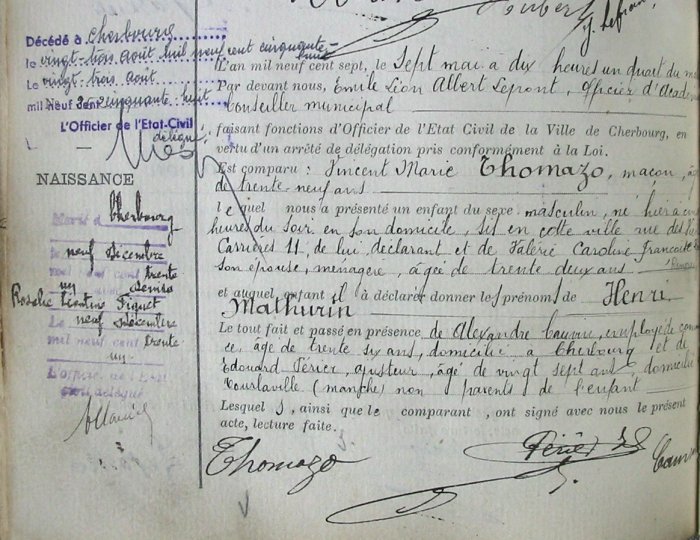 Décédé à Cherbourg
le vingt-trois août huit neuf cent cinquante-huit
Le vingt trois août
mil neuf cent cinquante huit
L'Officier de l'Etat-Civil
délégué,
NAISSANCE
Marié à Cherbourg
le neuf Décembre
mil neuf cent trente
un
Rosalie
Le neuf Décembre
mil neuf cent trente
un
L'Officier de l'Etat
Civil délégué
L'an mil neuf cent sept, le Sept mai à dix heures un quart du
Par devant nous, Emile Léon Albert Lepont, Officier d'Académie
Conseiller municipal
faisant fonctions d'Officier de l'Etat Civil de la Ville de Cherbourg, en
vertu d'un arrêté de délégation pris conformément à la Loi.
Est comparu : Vincent Marie Thomazo, maçon,
de trente-neuf ans
lequel nous a présenté un enfant du sexe masculin, né hier à
heures du soir en son domicile, sis en cette ville rue des
Carrières 11, de lui déclarant et de Valérie Caroline Françoise
son épouse, ménagère, âgée de trente deux ans
et auquel enfant il a déclaré donner les prénoms de Henri
Mathurin
Le tout fait et passé en présence de Alexandre employé de
ce, âgé de trente six ans, domicilié à Cherbourg et de
Edouard Périer, ajusteur, âgé de vingt sept ans, domicilié
Tourlaville (manche) non parents de l'enfant
Lesquels, ainsi que le comparant, ont signé avec nous le présent
acte, lecture faite.
Thomazo
Périer